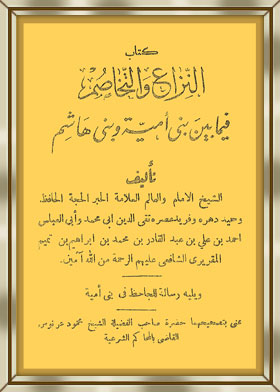 كتاب
النزاع والتخاصم
فيما بين بنى أمية وبنى هاشم
تأليف
الشيخ الامام والعالم العلامة الحبر الحجة الحافظ
وحيد دهره وفريد عصره تقى الدين ابى محمد وأبى العباس
احمد بن على بن عبد القادر بن محمد بن ابراهيم بن تميم
المقريزى الشافعى عليهم الرحمة من الله آمين.
ويليه رسالة للجاحظ فى بنى أمية
عنى بتصحيحها حضرة صاحب الفضيلة الشيخ محمود عرنوس
القاضى بالمحاكم الشرعية